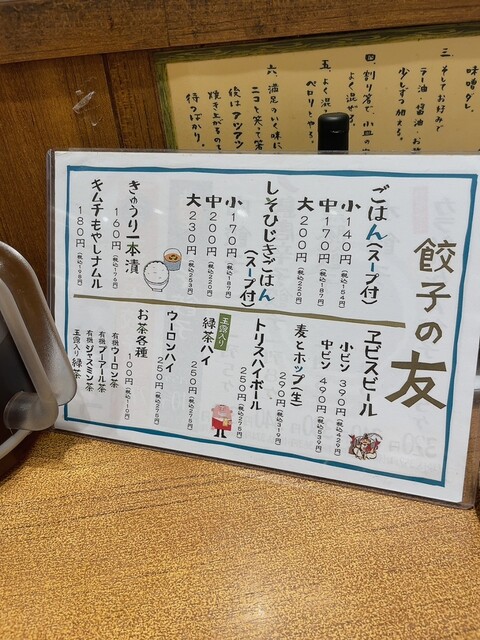 三、そしてお好みで
ラー油・醤油・お酢
少しずつ加える。
よく混ぜる。
五、よく混ぜ
ペロリとやる。
六、満足のいく味に
ニコと笑って
後はアツアツ
焼き上がるの
待つばかり。
餃子の友
ごはん(スープ付)
小 140円(税込154円)
中 170円(税込187円)
大 200円(税込220円)
しそひじきごはん(スープ付)
小 170円(税込187円)
中 200円(税込220円)
大 230円(税込253円)
きゅうり一本漬
160円(税込176円)
キムチもやしナムル
180円(税込198円)
ヱビスビール
小ビン 390円(税込429円)
中ビン 490円(税込539円)
麦とホップ(生)
290円(税込319円)
トリスハイボール
250円(税込275円)
玉露入り
緑茶ハイ
250円(税込275円)
ウーロンハイ
250円(税込275円)
お茶各種
100円(税込110円)
有機ウーロン茶
有機プーアール茶
有機ジャスミン茶
玉露入り緑茶